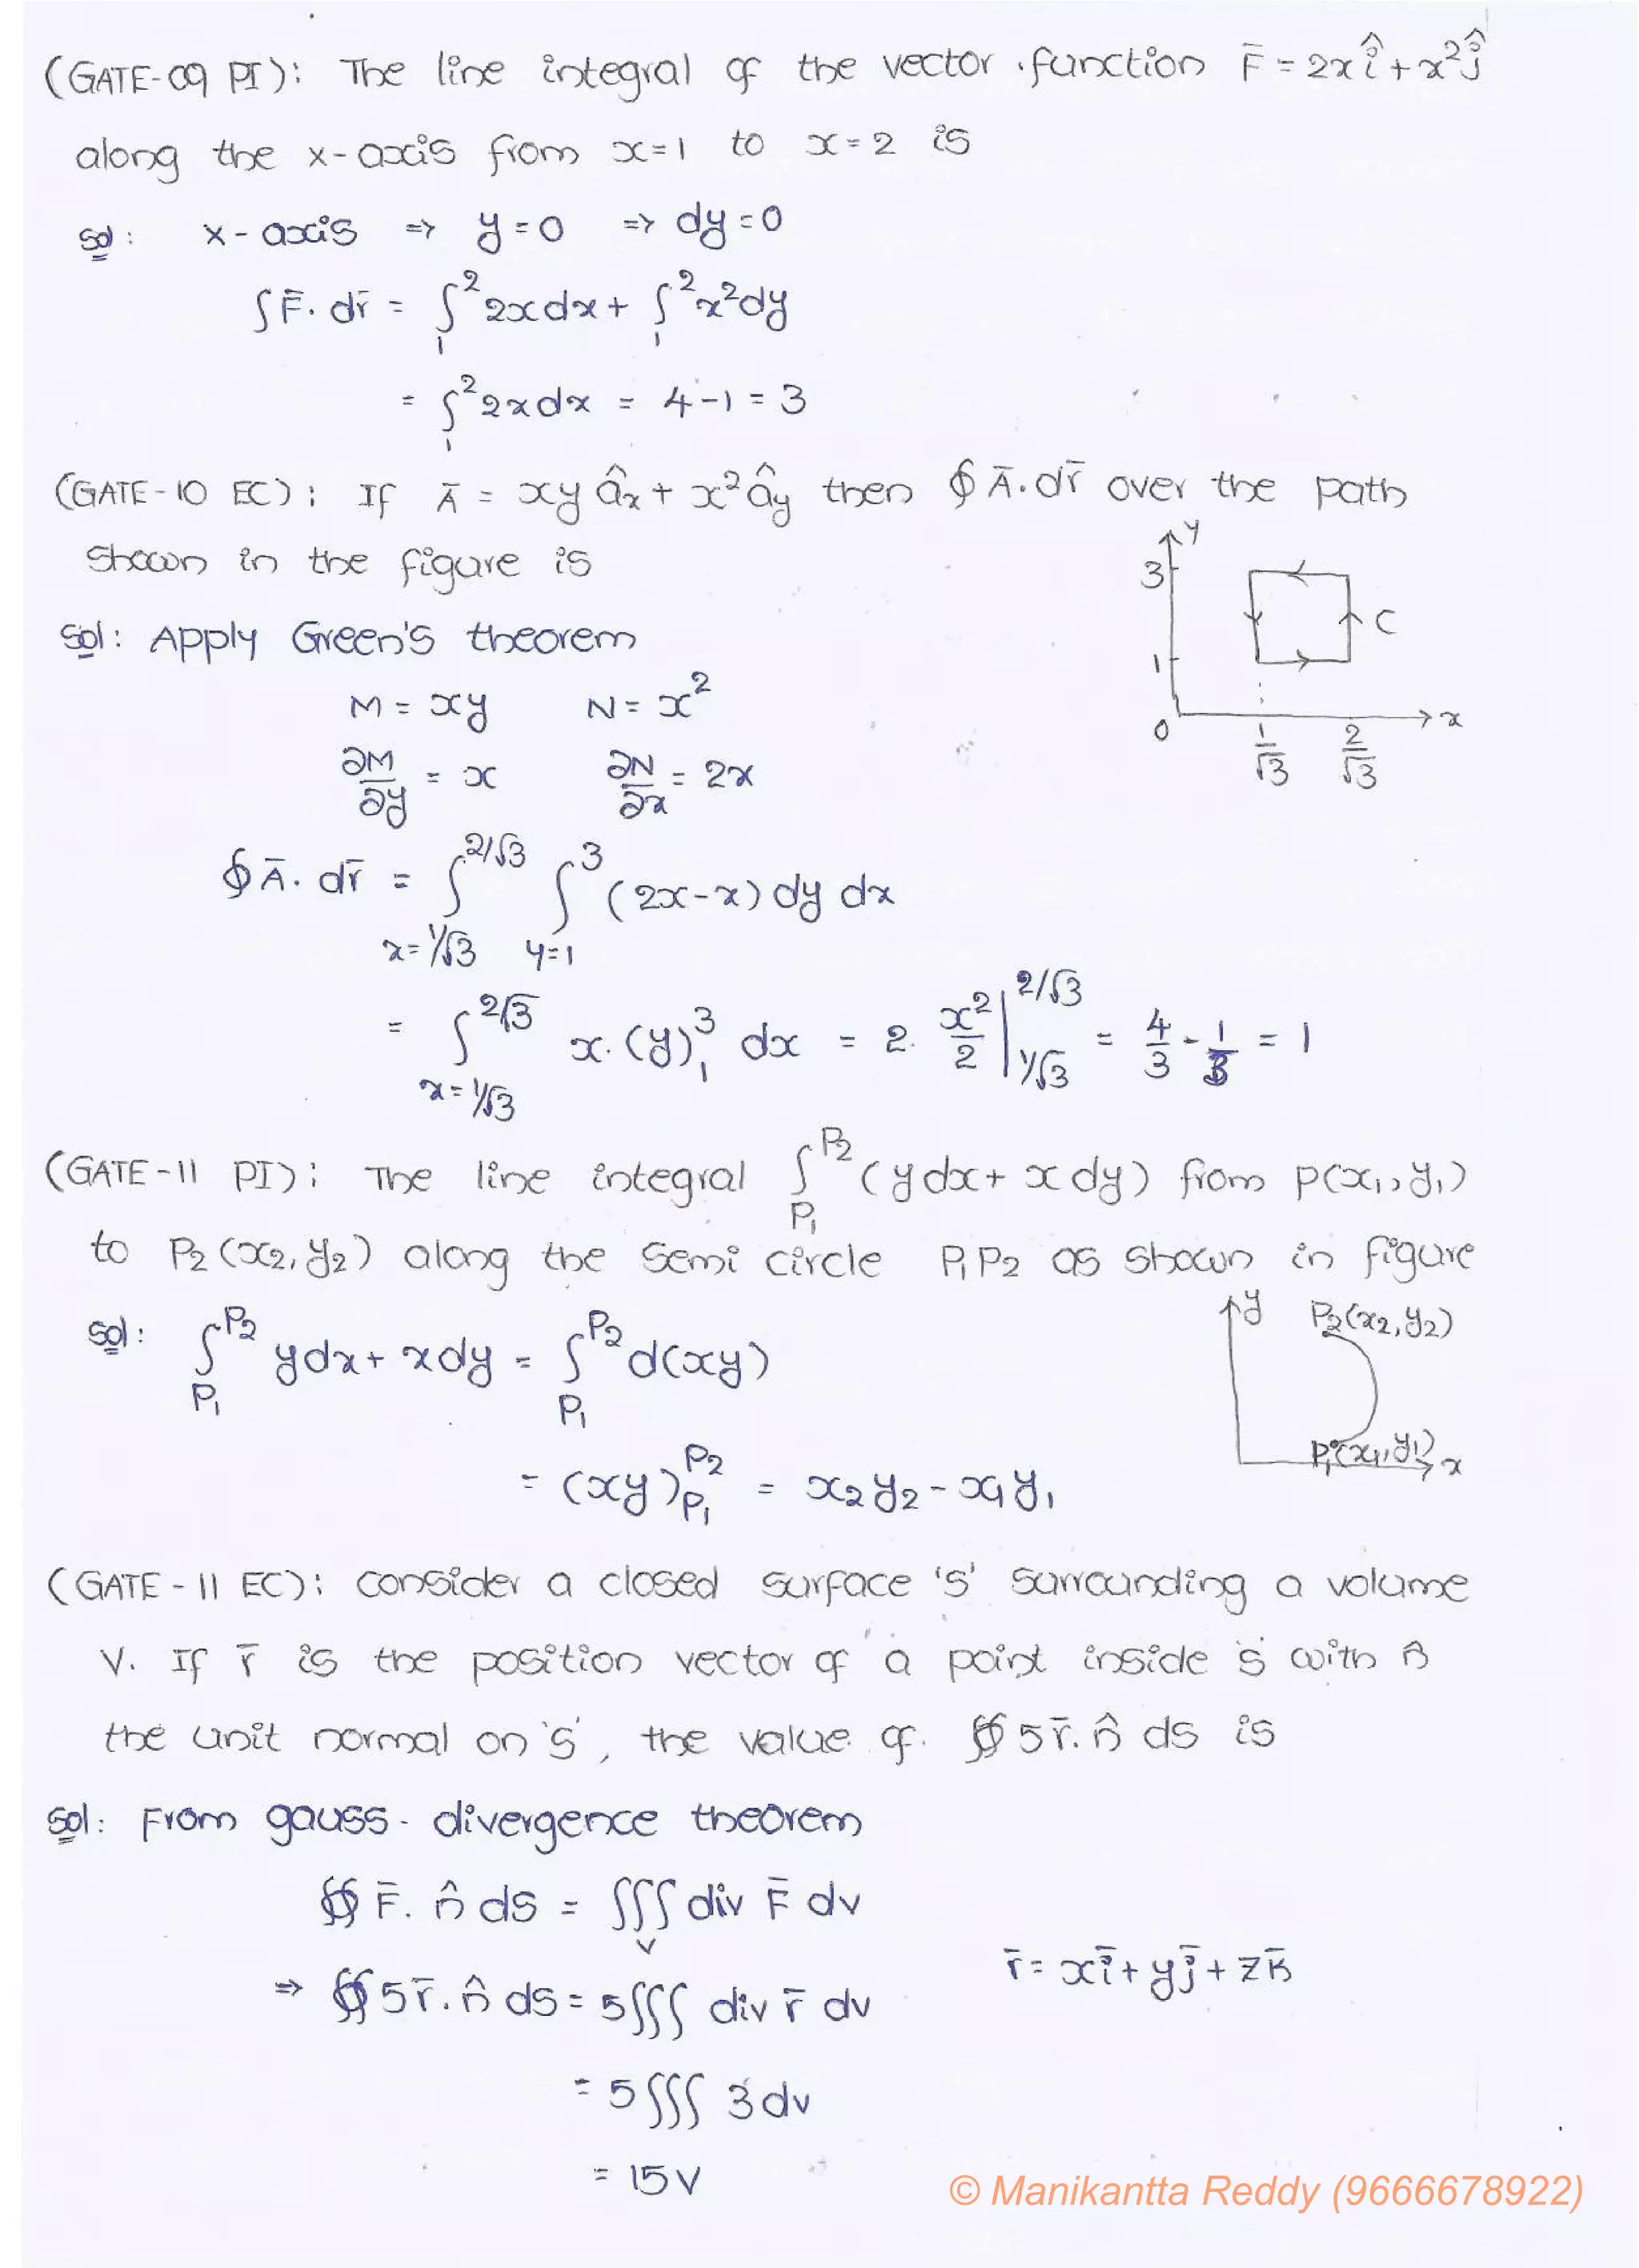 (GATE-09 PI): The line integral of the vector function F̄ = 2x î + x² ĵ
along the x-axis from x=1 to x=2 is
Sol: x-axis => y=0 => dy=0
∫F̄. dr̄ = ∫₁² 2x dx + ∫₁² x² dy
= ∫₁² 2x dx = 4-1 = 3
(GATE-10 EC): If Ā = xy âx + x² ây then ∮ Ā.dr̄ over the path
shown in the figure is
y
3
C
1
0
x
1/√3
2/√3
Sol: Apply Green's theorem
M = xy N = x²
∂M/∂y = x ∂N/∂x = 2x
∮ Ā. dr̄ = ∫_{x=1/√3}^{2/√3} ∫_{y=1}^{3} (2x-x) dy dx
= ∫_{x=1/√3}^{2/√3} x. (y)₁³ dx = 2. x²/2 |_{1/√3}^{2/√3} = 4/3 - 1/3 = 1
(GATE-11 PI): The line integral ∫_{P₁}^{P₂} (y dx + x dy) from P(x₁, y₁)
to P₂(x₂, y₂) along the semi circle P₁P₂ as shown in figure
y
P₂(x₂, y₂)
P₁(x₁, y₁)
x
Sol: ∫_{P₁}^{P₂} ydx + xdy = ∫_{P₁}^{P₂} d(xy)
= (xy)_{P₁}^{P₂} = x₂y₂ - x₁y₁
(GATE-11 EC): Consider a closed surface 'S' surrounding a volume
V. If r̄ is the position vector of a point inside S with n̂
the unit normal on 'S', the value of ∯ 5r̄. n̂ ds is
Sol: From gauss divergence theorem
∯ F̄. n̂ ds = ∭_V div F̄ dv
=> ∯ 5r̄. n̂ ds = 5∭ div r̄ dv
r̄ = xī + yj̄ + zk̄
= 5∭ 3 dv
= 15V
© Manikantta Reddy (9666678922)